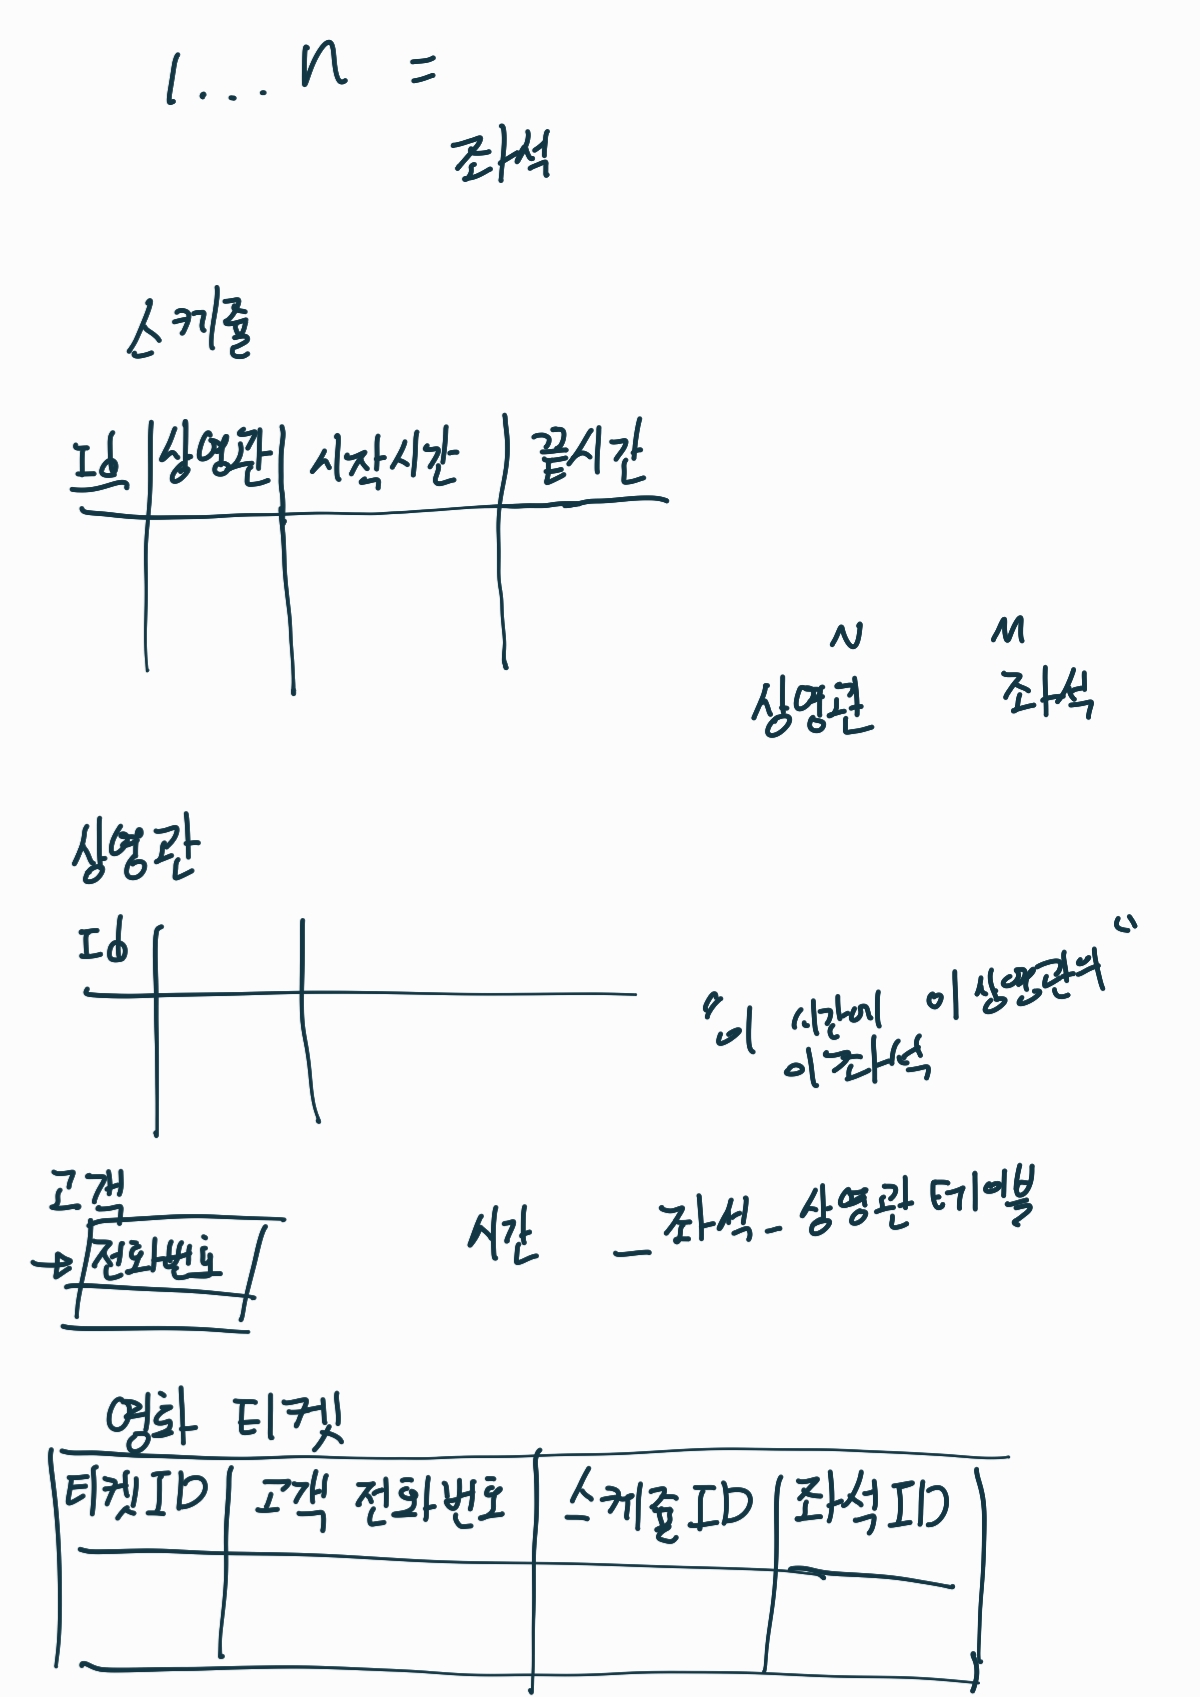 1 . . . n =
좌석
스케줄
Id 상영관 시작시간 끝시간
N M
상영관 좌석
상영관
Id
"이 시간에 이 상영관의"
이 좌석
고객
전화번호
시간 - 좌석 - 상영관 테이블
영화 티켓
티켓ID 고객 전화번호 스케줄ID 좌석ID